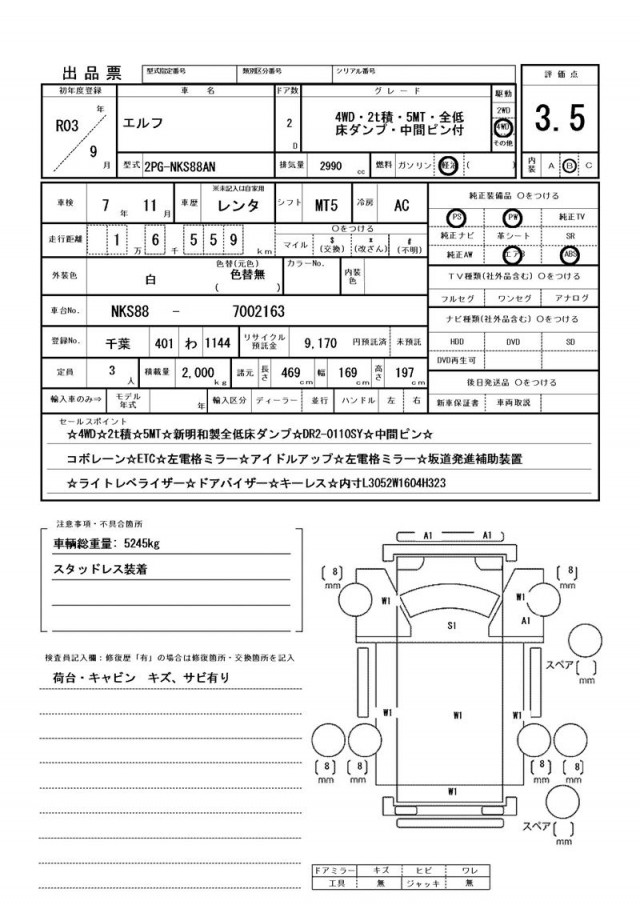 出品票 型式指定番号 類別区分番号 シリアル番号
評価点
初年度登録 車名 ドア数 グレード 駆動
R03 年 9 月
エルフ
2 D
4WD・2t積・5MT・全低
床ダンプ・中間ピン付
2WD
4WD
その他
3.5
型式 2PG-NKS88AN 排気量 2990 cc 燃料 ガソリン 軽油 ( )
内装 A B C
車検 7 年 11 月 車歴 ※未記入は自家用 レンタ シフト MT5 冷房 AC
純正装備品 ○をつける
走行距離 1 万 6 千 5 5 9 km
○をつける
マイル $ (交換) * (改ざん) # (不明)
PS PW 純正TV
純正ナビ 革シート SR
純正AW エアB ABS
外装色 白 色替(元色) 色替無 ( ) カラーNo. 内装色
TV種類(社外品含む) ○をつける
フルセグ ワンセグ アナログ
車台No. NKS88 - 7002163
ナビ種類(社外品含む) ○をつける
登録No. 千葉 401 わ 1144 リサイクル預託金 9,170 円預託済 未預託
HDD DVD SD
DVD再生可
定員 3 人 積載量 2,000 kg 諸元 長さ 469 cm 幅 169 cm 高さ 197 cm
後日発送品 ○をつける
輸入車のみ⇒ モデル年式 年 輸入区分 ディーラー 並行 ハンドル 左 右
新車保証書 車両取説
セールスポイント
☆4WD☆2t積☆5MT☆新明和製全低床ダンプ☆DR2-0110SY☆中間ピン☆
コボレーン☆ETC☆左電格ミラー☆アイドルアップ☆左電格ミラー☆坂道発進補助装置
☆ライトレベライザー☆ドアバイザー☆キーレス☆内寸L3052W1604H323
注意事項・不具合箇所
車輌総重量: 5245kg
スタッドレス装着
検査員記入欄:修復歴「有」の場合は修復箇所・交換箇所を記入
荷台・キャビン キズ、サビ有り
A1 A1
[8] mm [8] mm
W1 W1
S1 A1
スペア [ ] mm
W1 W1 W1
[8] mm [8] mm [8] mm [8] mm
W1
スペア [ ] mm
ドアミラー キズ ヒビ ワレ
工具 無 ジャッキ 無